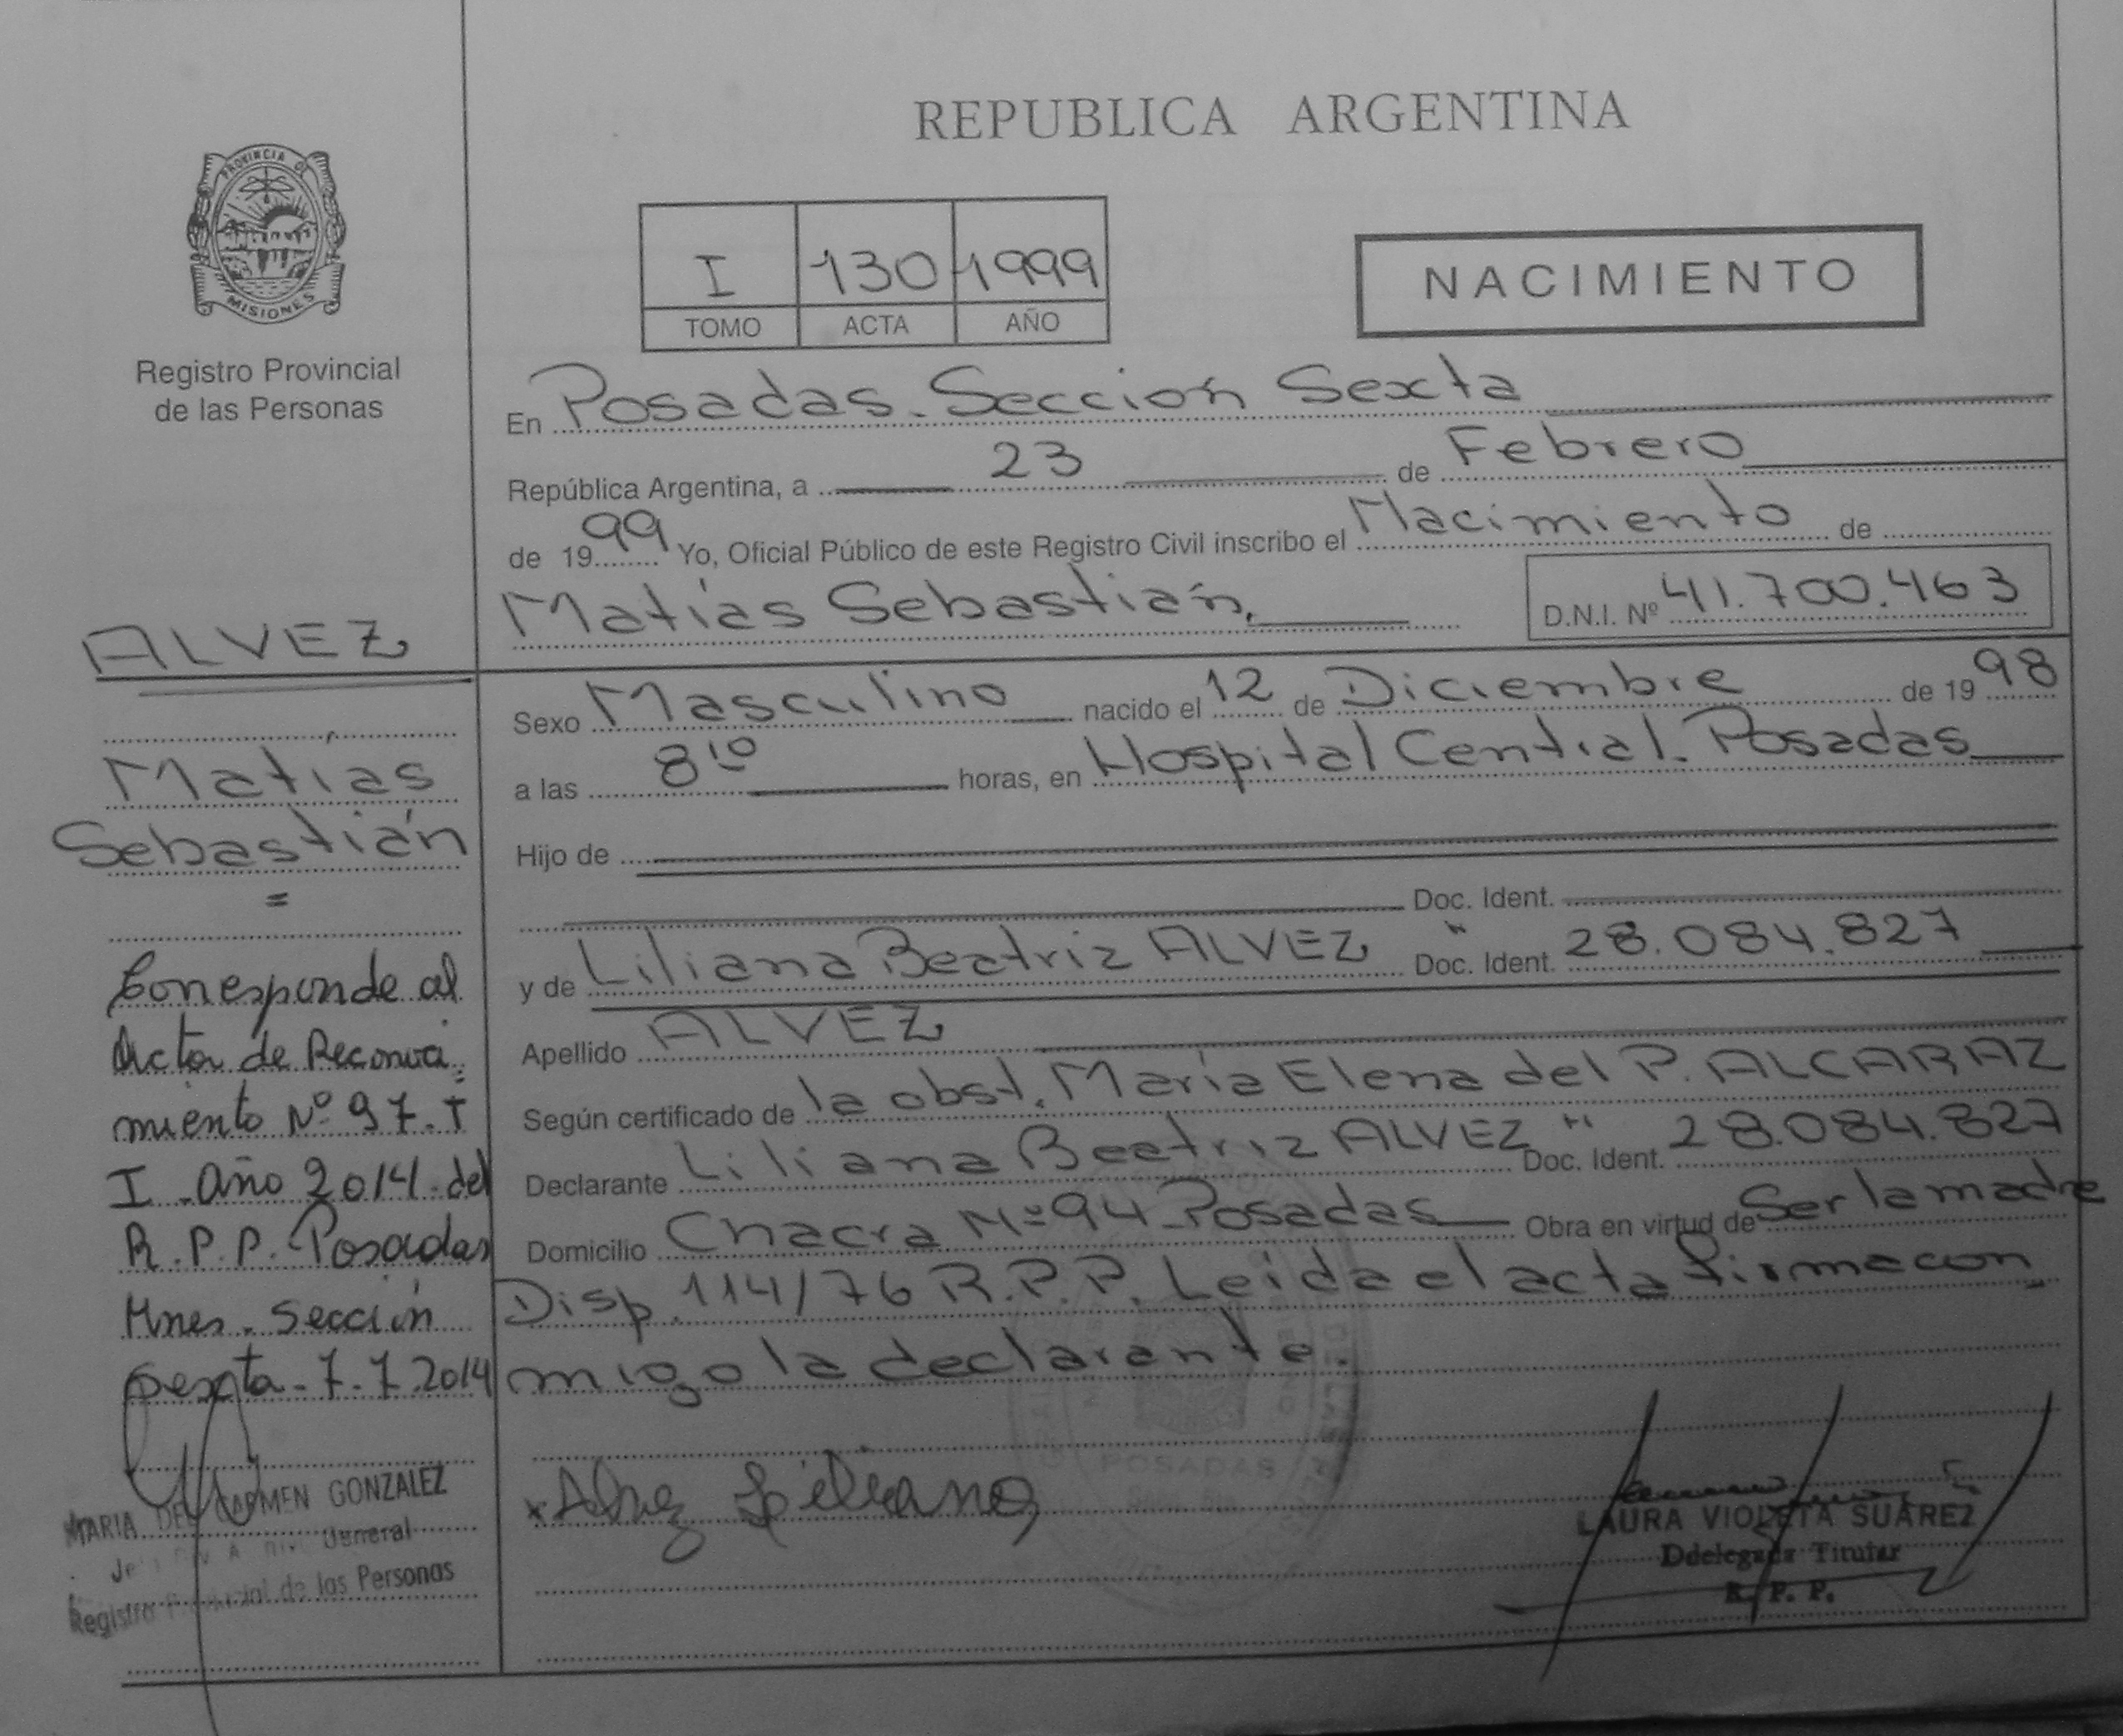 REPUBLICA ARGENTINA
PROVINCIA DE
MISIONES
Registro Provincial
de las Personas
I 130 1999
TOMO ACTA AÑO
NACIMIENTO
En Posadas. Sección Sexta
República Argentina, a 23 de Febrero
de 1999 Yo, Oficial Público de este Registro Civil inscribo el Nacimiento de
Matías Sebastián,
D.N.I. Nº 41.700.463
ALVEZ
Matías
Sebastián
=
Corresponde al
Acta de Reconoci
miento Nº 97. T
I - Año 2014 del
R.P.P. Posadas
Mnes. Sección
Sexta - 7.7.2014
MARIA DEL CARMEN GONZALEZ
General
Registro Provincial de las Personas
Sexo Masculino nacido el 12 de Diciembre de 1998
a las 8 10 horas, en Hospital Central. Posadas
Hijo de
Doc. Ident.
y de Liliana Beatriz ALVEZ Doc. Ident. " 28.084.827
Apellido ALVEZ
Según certificado de la obst. María Elena del P. ALCARAZ
Declarante Liliana Beatriz ALVEZ Doc. Ident. " 28.084.827
Domicilio Chacra Nº 94 - Posadas Obra en virtud de Ser la madre
Disp. 114/76 R.P.P. Leída el acta firma con
migo la declarante.
x Alvez Liliana
POSADAS
LAURA VIOLETA SUAREZ
Ddelegada Titular
R. P. P.